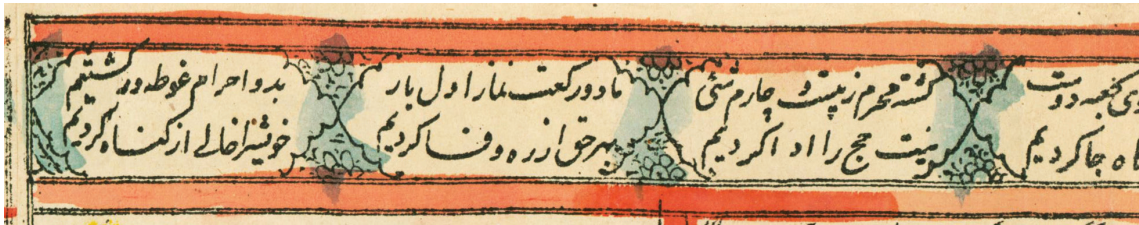 کعبه دوست
جا کردیم
گشته محرم ز پست و چارم شئی
نیت حج را ادا کردیم
ما دو رکعت نماز اول بار
بهر حق از ره وفا کردیم
بدو احرام غوطه ور گشتیم
خویش را خالی از گناه کردیم